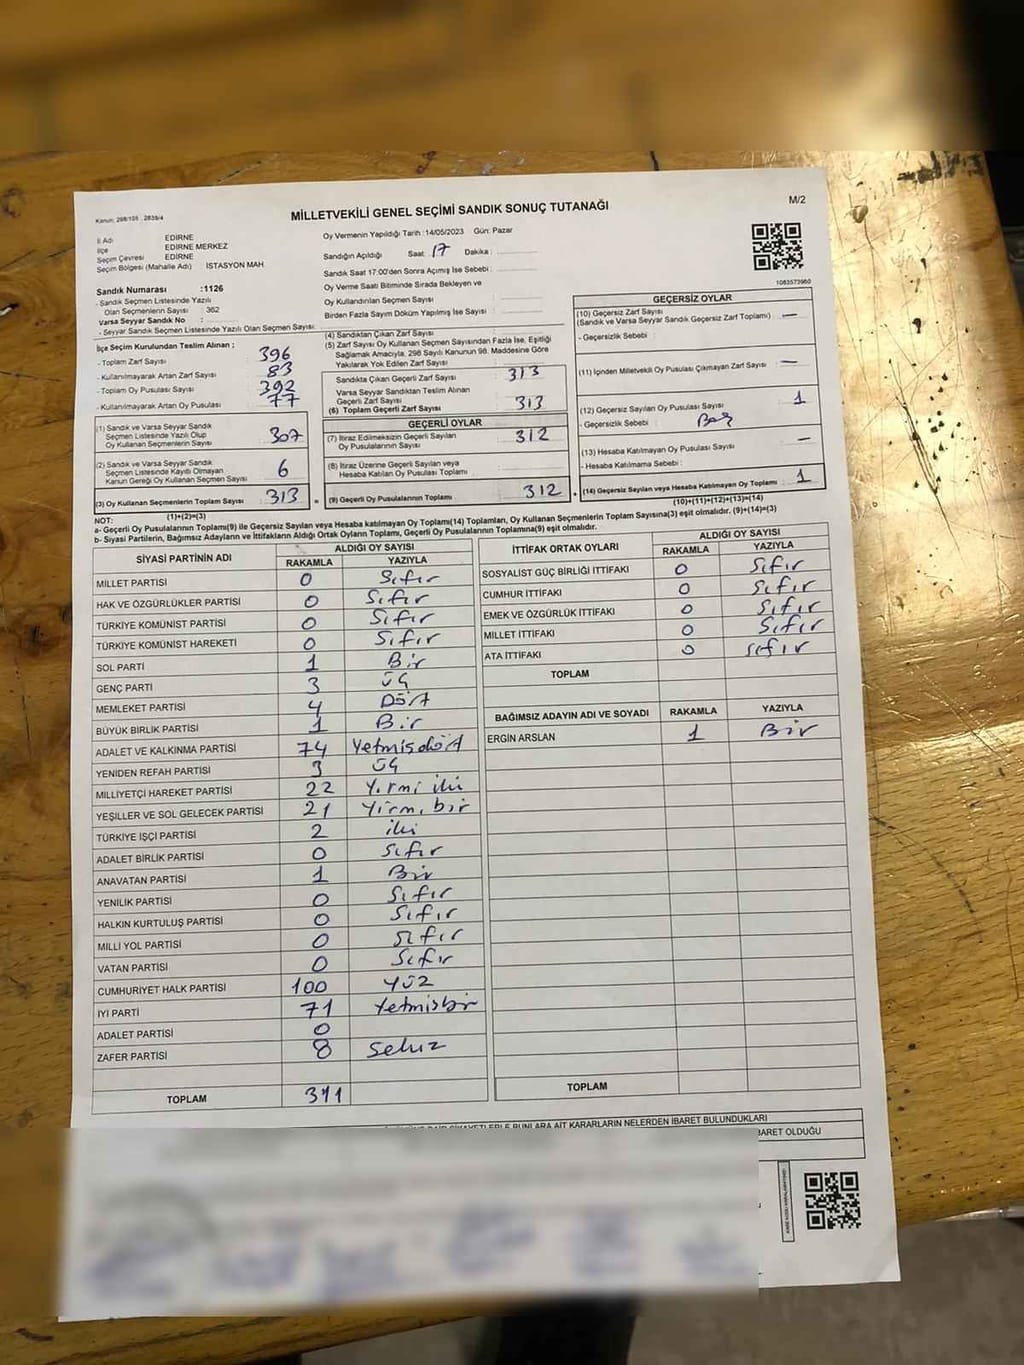 Kanun: 298/105 , 2839/4
MİLLETVEKİLİ GENEL SEÇİMİ SANDIK SONUÇ TUTANAĞI
M/2
İl Adı EDİRNE
İlçe EDİRNE MERKEZ
Seçim Çevresi EDİRNE
Seçim Bölgesi (Mahalle Adı) İSTASYON MAH.
Sandık Numarası :1126
- Sandık Seçmen Listesinde Yazılı
Olan Seçmenlerin Sayısı 362
Varsa Seyyar Sandık No :
- Seyyar Sandık Seçmen Listesinde Yazılı Olan Seçmen Sayısı:
Oy Vermenin Yapıldığı Tarih :14/05/2023 Gün: Pazar
Sandığın Açıldığı Saat: 17 Dakika :
Sandık Saat 17:00'den Sonra Açımış İse Sebebi :
Oy Verme Saati Bitiminde Sırada Bekleyen ve
Oy Kullandırılan Seçmen Sayısı
Birden Fazla Sayım Döküm Yapılmış İse Sayısı :
1083573960
İlçe Seçim Kurulundan Teslim Alınan ;
- Toplam Zarf Sayısı : 396
- Kullanılmayarak Artan Zarf Sayısı : 83
- Toplam Oy Pusulası Sayısı : 392
- Kullanılmayarak Artan Oy Pusulası : 77
(1) Sandık ve Varsa Seyyar Sandık
Seçmen Listesinde Yazılı Olup
Oy Kullanan Seçmenlerin Sayısı 307
(2) Sandık ve Varsa Seyyar Sandık
Seçmen Listesinde Kayıtlı Olmayan
Kanun Gereği Oy Kullanan Seçmen Sayısı 6
(3) Oy Kullanan Seçmenlerin Toplam Sayısı 313
(1)+(2)=(3)
(4) Sandıktan Çıkan Zarf Sayısı
(5) Zarf Sayısı Oy Kullanan Seçmen Sayısından Fazla İse, Eşitliği
Sağlamak Amacıyla, 298 Sayılı Kanunun 98. Maddesine Göre
Yakılarak Yok Edilen Zarf Sayısı :
Sandıkta Çıkan Geçerli Zarf Sayısı 313
Varsa Seyyar Sandıktan Teslim Alınan
Geçerli Zarf Sayısı
(6) Toplam Geçerli Zarf Sayısı 313
GEÇERLİ OYLAR
(7) İtiraz Edilmeksizin Geçerli Sayılan
Oy Pusulalarının Sayısı 312
(8) İtiraz Üzerine Geçerli Sayılan veya
Hesaba Katılan Oy Pusulası Toplamı
= (9) Geçerli Oy Pusulalarının Toplamı 312
GEÇERSİZ OYLAR
(10) Geçersiz Zarf Sayısı
(Sandık ve Varsa Seyyar Sandık Geçersiz Zarf Toplamı) —
- Geçersizlik Sebebi :
(11) İçinden Milletvekili Oy Pusulası Çıkmayan Zarf Sayısı —
(12) Geçersiz Sayılan Oy Pusulası Sayısı 1
- Geçersizlik Sebebi : Boş
(13) Hesaba Katılmayan Oy Pusulası Sayısı —
- Hesaba Katılmama Sebebi :
+ (14) Geçersiz Sayılan veya Hesaba Katılmayan Oy Toplamı 1
(10)+(11)+(12)+(13)=(14)
NOT:
a- Geçerli Oy Pusulalarının Toplamı(9) ile Geçersiz Sayılan veya Hesaba katılmayan Oy Toplamı(14) Toplamları, Oy Kullanan Seçmenlerin Toplam Sayısına(3) eşit olmalıdır. (9)+(14)=(3)
b- Siyasi Partilerin, Bağımsız Adayların ve İttifakların Aldığı Ortak Oyların Toplamı, Geçerli Oy Pusulalarının Toplamına(9) eşit olmalıdır.
SİYASİ PARTİNİN ADI ALDIĞI OY SAYISI
RAKAMLA YAZIYLA
MİLLET PARTİSİ 0 Sıfır
HAK VE ÖZGÜRLÜKLER PARTİSİ 0 Sıfır
TÜRKİYE KOMÜNİST PARTİSİ 0 Sıfır
TÜRKİYE KOMÜNİST HAREKETİ 0 Sıfır
SOL PARTİ 1 Bir
GENÇ PARTİ 3 Üç
MEMLEKET PARTİSİ 4 Dört
BÜYÜK BİRLİK PARTİSİ 1 Bir
ADALET VE KALKINMA PARTİSİ 74 Yetmişdört
YENİDEN REFAH PARTİSİ 3 Üç
MİLLİYETÇİ HAREKET PARTİSİ 22 Yirmi iki
YEŞİLLER VE SOL GELECEK PARTİSİ 21 Yirmi bir
TÜRKİYE İŞÇİ PARTİSİ 2 iki
ADALET BİRLİK PARTİSİ 0 Sıfır
ANAVATAN PARTİSİ 1 Bir
YENİLİK PARTİSİ 0 Sıfır
HALKIN KURTULUŞ PARTİSİ 0 Sıfır
MİLLİ YOL PARTİSİ 0 Sıfır
VATAN PARTİSİ 0 Sıfır
CUMHURİYET HALK PARTİSİ 100 Yüz
İYİ PARTİ 71 Yetmişbir
ADALET PARTİSİ 0
ZAFER PARTİSİ 8 Sekiz
TOPLAM 311
İTTİFAK ORTAK OYLARI ALDIĞI OY SAYISI
RAKAMLA YAZIYLA
SOSYALİST GÜÇ BİRLİĞİ İTTİFAKI 0 Sıfır
CUMHUR İTTİFAKI 0 Sıfır
EMEK VE ÖZGÜRLÜK İTTİFAKI 0 Sıfır
MİLLET İTTİFAKI 0 Sıfır
ATA İTTİFAKI 0 Sıfır
TOPLAM
BAĞIMSIZ ADAYIN ADI VE SOYADI RAKAMLA YAZIYLA
ERGİN ARSLAN 1 Bir
TOPLAM
ŞİKAYETLERLE BUNLARA AİT KARARLARIN NELERDEN İBARET BULUNDUKLARI
İBARET OLDUĞU